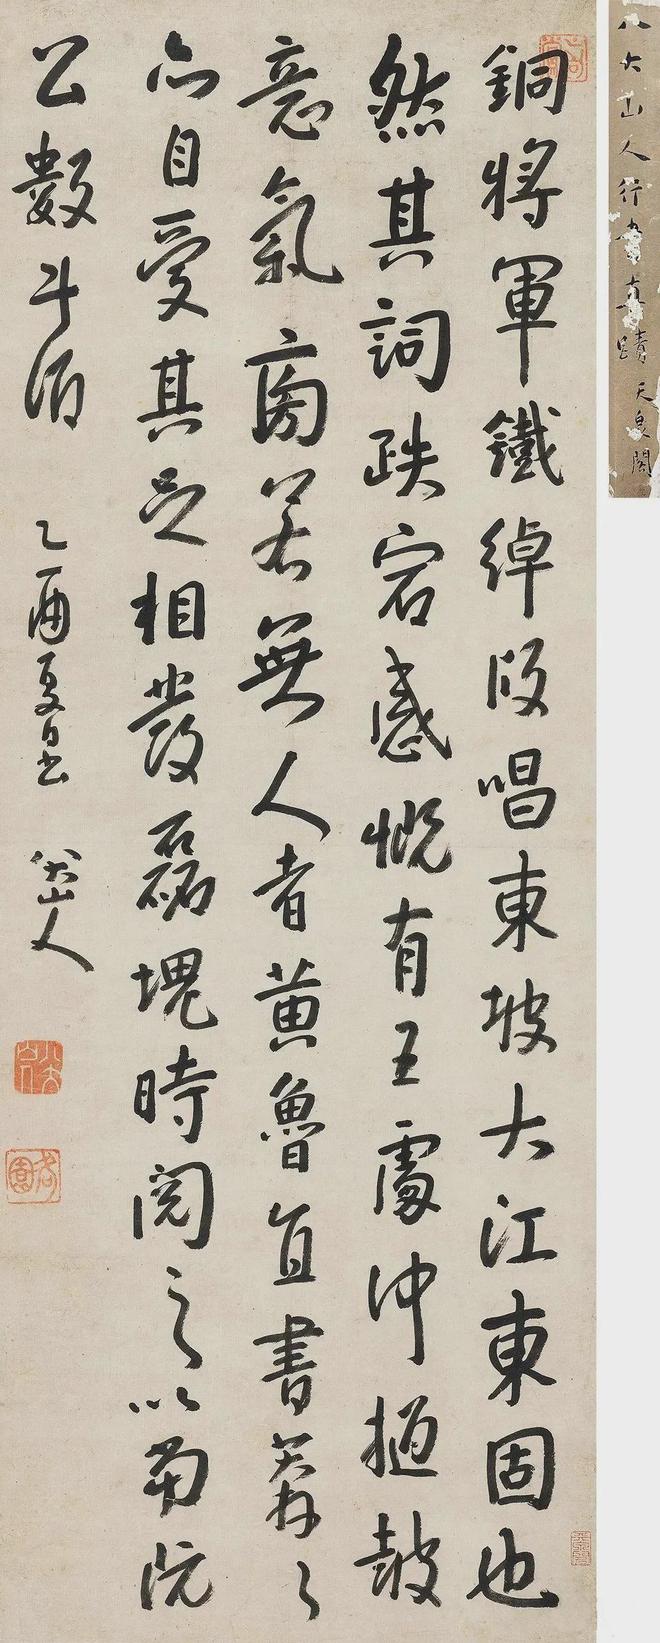 八大山人行書真蹟 天泉閣
銅將軍鐵綽版唱東坡大江東固也
然其詞跌宕感慨有王處仲撾鼓
意氣旁若無人者黃魯直書莽〻
亦自受其足相發磊塊時閱之以當阮
公數斗酒
乙酉夏日書 八大山人